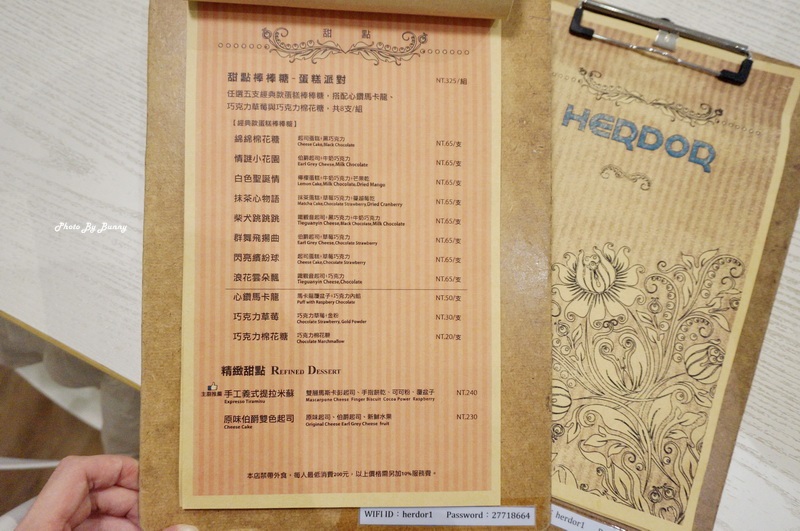 甜點
甜點棒棒糖-蛋糕派對 NT.325/組
任選五支經典款蛋糕棒棒糖，搭配心鑽馬卡龍、
巧克力草莓與巧克力棉花糖，共8支/組
【經典款蛋糕棒棒糖】
綿綿棉花糖 起司蛋糕+黑巧克力 NT.65/支
Cheese Cake,Black Chocolate
情謎小花園 伯爵起司+牛奶巧克力 NT.65/支
Earl Grey Cheese,Milk Chocolate
白色聖誕情 檸檬蛋糕+牛奶巧克力+芒果乾 NT.65/支
Lemon Cake,Milk Chocolate,Dried Mango
抹茶心物語 抹茶蛋糕+草莓巧克力+蔓越莓乾 NT.65/支
Matcha Cake,Chocolate Strawberry,Dried Cranberry
柴犬跳跳跳 鐵觀音起司+黑巧克力+牛奶巧克力 NT.65/支
Tieguanyin Cheese,Black Chocolate,Milk Chocolate
群舞飛揚曲 伯爵起司+草莓巧克力 NT.65/支
Earl Grey Cheese,Chocolate Strawberry
閃亮繽紛球 起司蛋糕+草莓巧克力 NT.65/支
Cheese Cake,Chocolate Strawberry
浪花雲朵飄 鐵觀音起司+巧克力 NT.65/支
Tieguanyin Cheese,Chocolate
心鑽馬卡龍 馬卡龍覆盆子+巧克力內餡 NT.50/支
Puff with Raspbery Chocolate
巧克力草莓 巧克力草莓+金粉 NT.30/支
Chocolate Strawberry, Gold Powder
巧克力棉花糖 巧克力棉花糖 NT.20/支
Chocolate Marshmallow
精緻甜點 REFINED DESSERT
主廚推薦 手工義式提拉米蘇 雙層馬斯卡彭起司、手指餅乾、可可粉、覆盆子 NT.240
Espresso Tiramisu Mascarpone Cheese Finger Biscuit Cocoa Power Raspberry
原味伯爵雙色起司 原味起司、伯爵起司、新鮮水果 NT.230
Cheese Cake Original Cheese Earl Grey Cheese fruit
本店禁帶外食，每人最低消費200元，以上價格需另加10%服務費。
WIFI ID：herdor1 Password：27718664
HERDOR
herdor1
Photo By Bunny